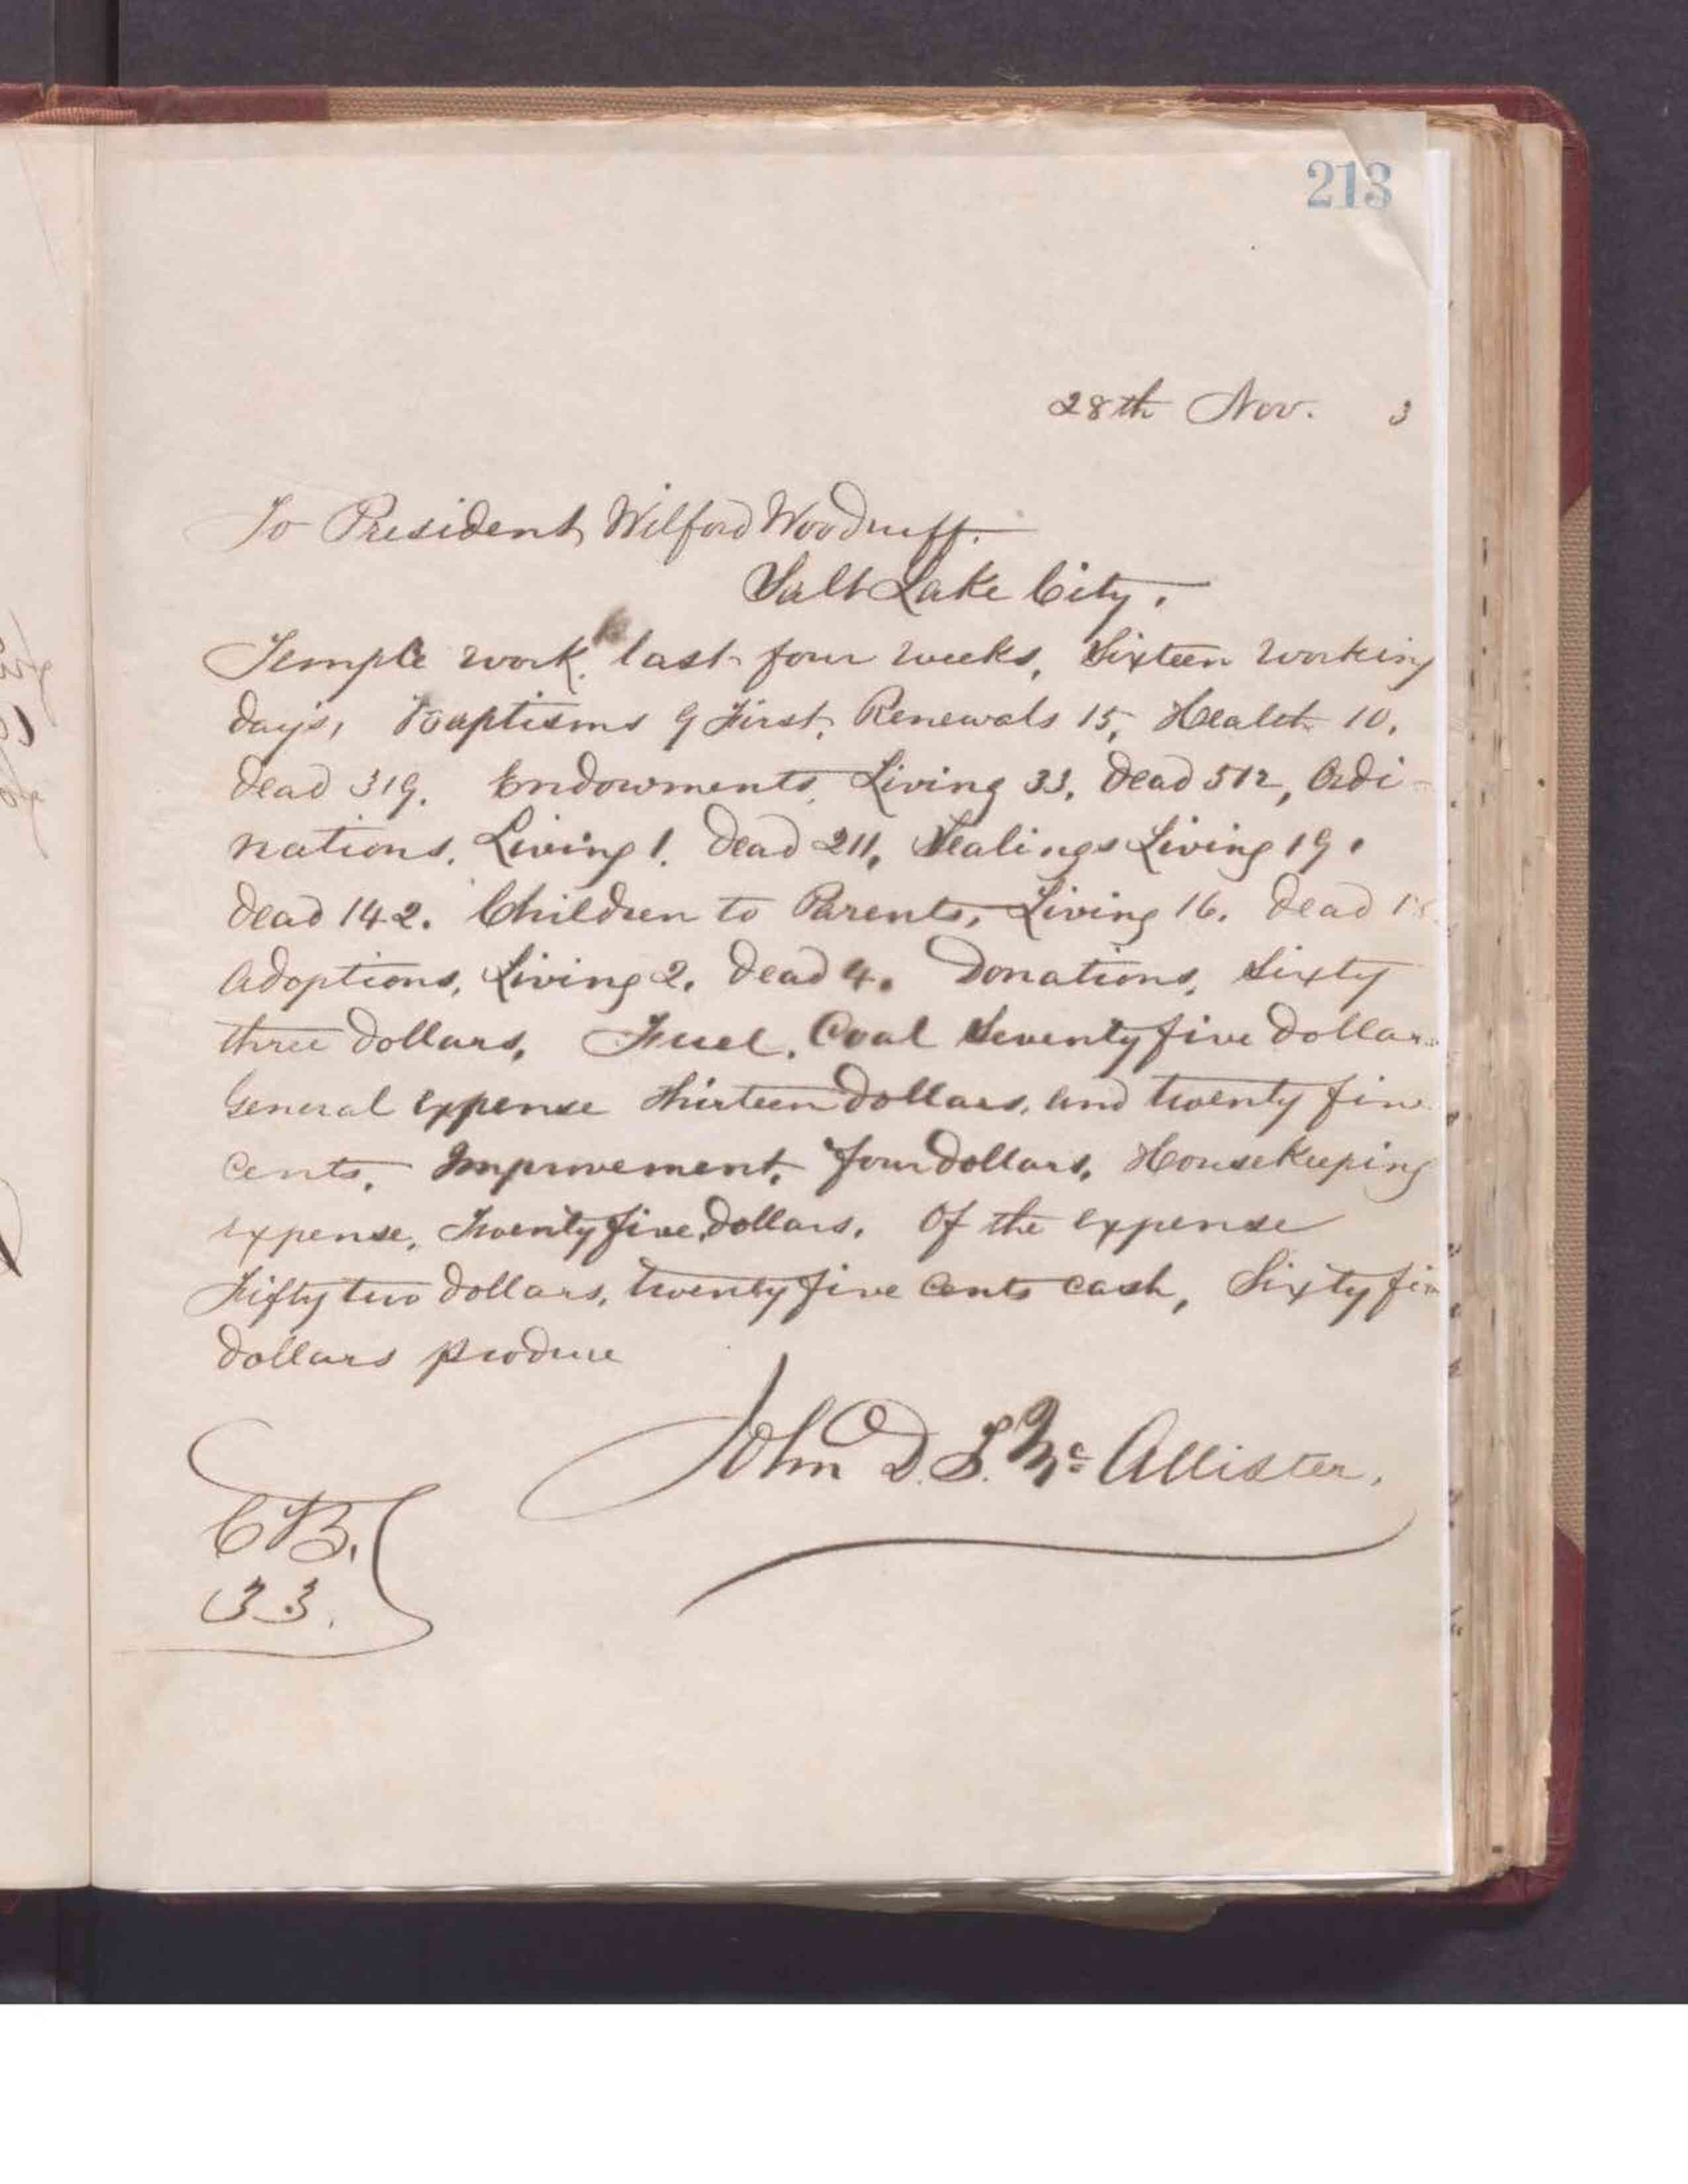 213
28th Nov. 3
To President Wilford Woodruff.
Salt Lake City.
Temple work. last four weeks, Sixteen working
days, Baptisms 9 First, Renewals 15, Health 10.
Dead 319. Endowments, Living 33. Dead 512, Ordi-
nations. Living 1. Dead 211. Sealings Living 19.
Dead 142. Children to Parents, Living 16. Dead
Adoptions, Living 2. Dead 4. Donations, Sixty
three Dollars, Fuel, Coal Seventy five Dollars
General expense Thirteen Dollars, and twenty five
Cents. Improvement, Four dollars, HouseKeeping
expense, Twenty five Dollars. Of the expense
Fifty two Dollars, twenty five Cents Cash, Sixty five
Dollars produce
John D. T. Mc Allister.
CB.
33.